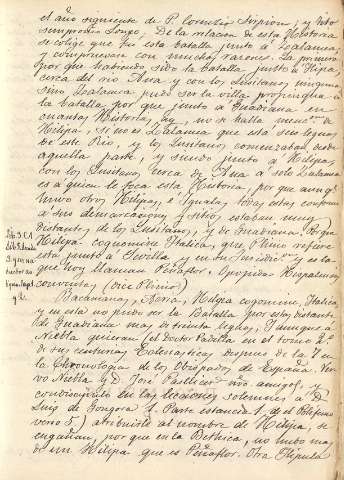 el año siguiente de P. Cornelio Scipion, y Tito
Sempronio Longo; De la relacion de esta Historia
se colige que fue esta batalla junto á Zalamea,
y compruevase con muchas razones. La primera
por que habiendo sido la batalla junto á Hilipa
cerca del rio Ana y con los Lusitanos, ninguna
sino Zalamea pudo ser la villa propinqua á
la batalla, por que junto á Guadiana en
cuantas Historias hay, no se halla
Hilipa, si no es Zalamea que esta seis leguas
de este Rio, y los Lusitanos comenzaban desde
aquella parte, y siendo junto á Hilipa,
con los Lusitanos, cerca de Ana á solo Zalamea
es á quien le toca esta Historia, por que aunque
huvo otras Hilipas, é Ilipulas, todas estas conforme
á sus demarcaciones y sitios, estaban muy
distantes, de los Lusitanos, y de Guadiana. Porque
Hilipa cognomine Italica, que Plinio refiere
esta junto á Sevilla y en su y es la
que hoy llaman Peñaflor, Oppida Hispalensis
conventus (dice Plinio)
Italica,
y en esta no pudo ser la Batalla por estar distante
de Guadiana muchas leguas, Y aunque á
Niebla quieran el Doctor Padilla en el tomo 2º
de sus centurias Eclesiasticas despues de la 7ª en
la Chronologia de los Obispados de España.
Niebla y D. José Pellicer mis amigos, y
condiscipulos en las lecciones solemnes á D.
Luis de Gongora 1. Parte estancia 1. de el Polifemo
verso 5) atribuirle el nombre de Hilipa, se
engañan, por que en la Bethica, no hubo mas
de un Hilipa que es Peñaflor. Otra Ilipula
Lib. 3. C. 1